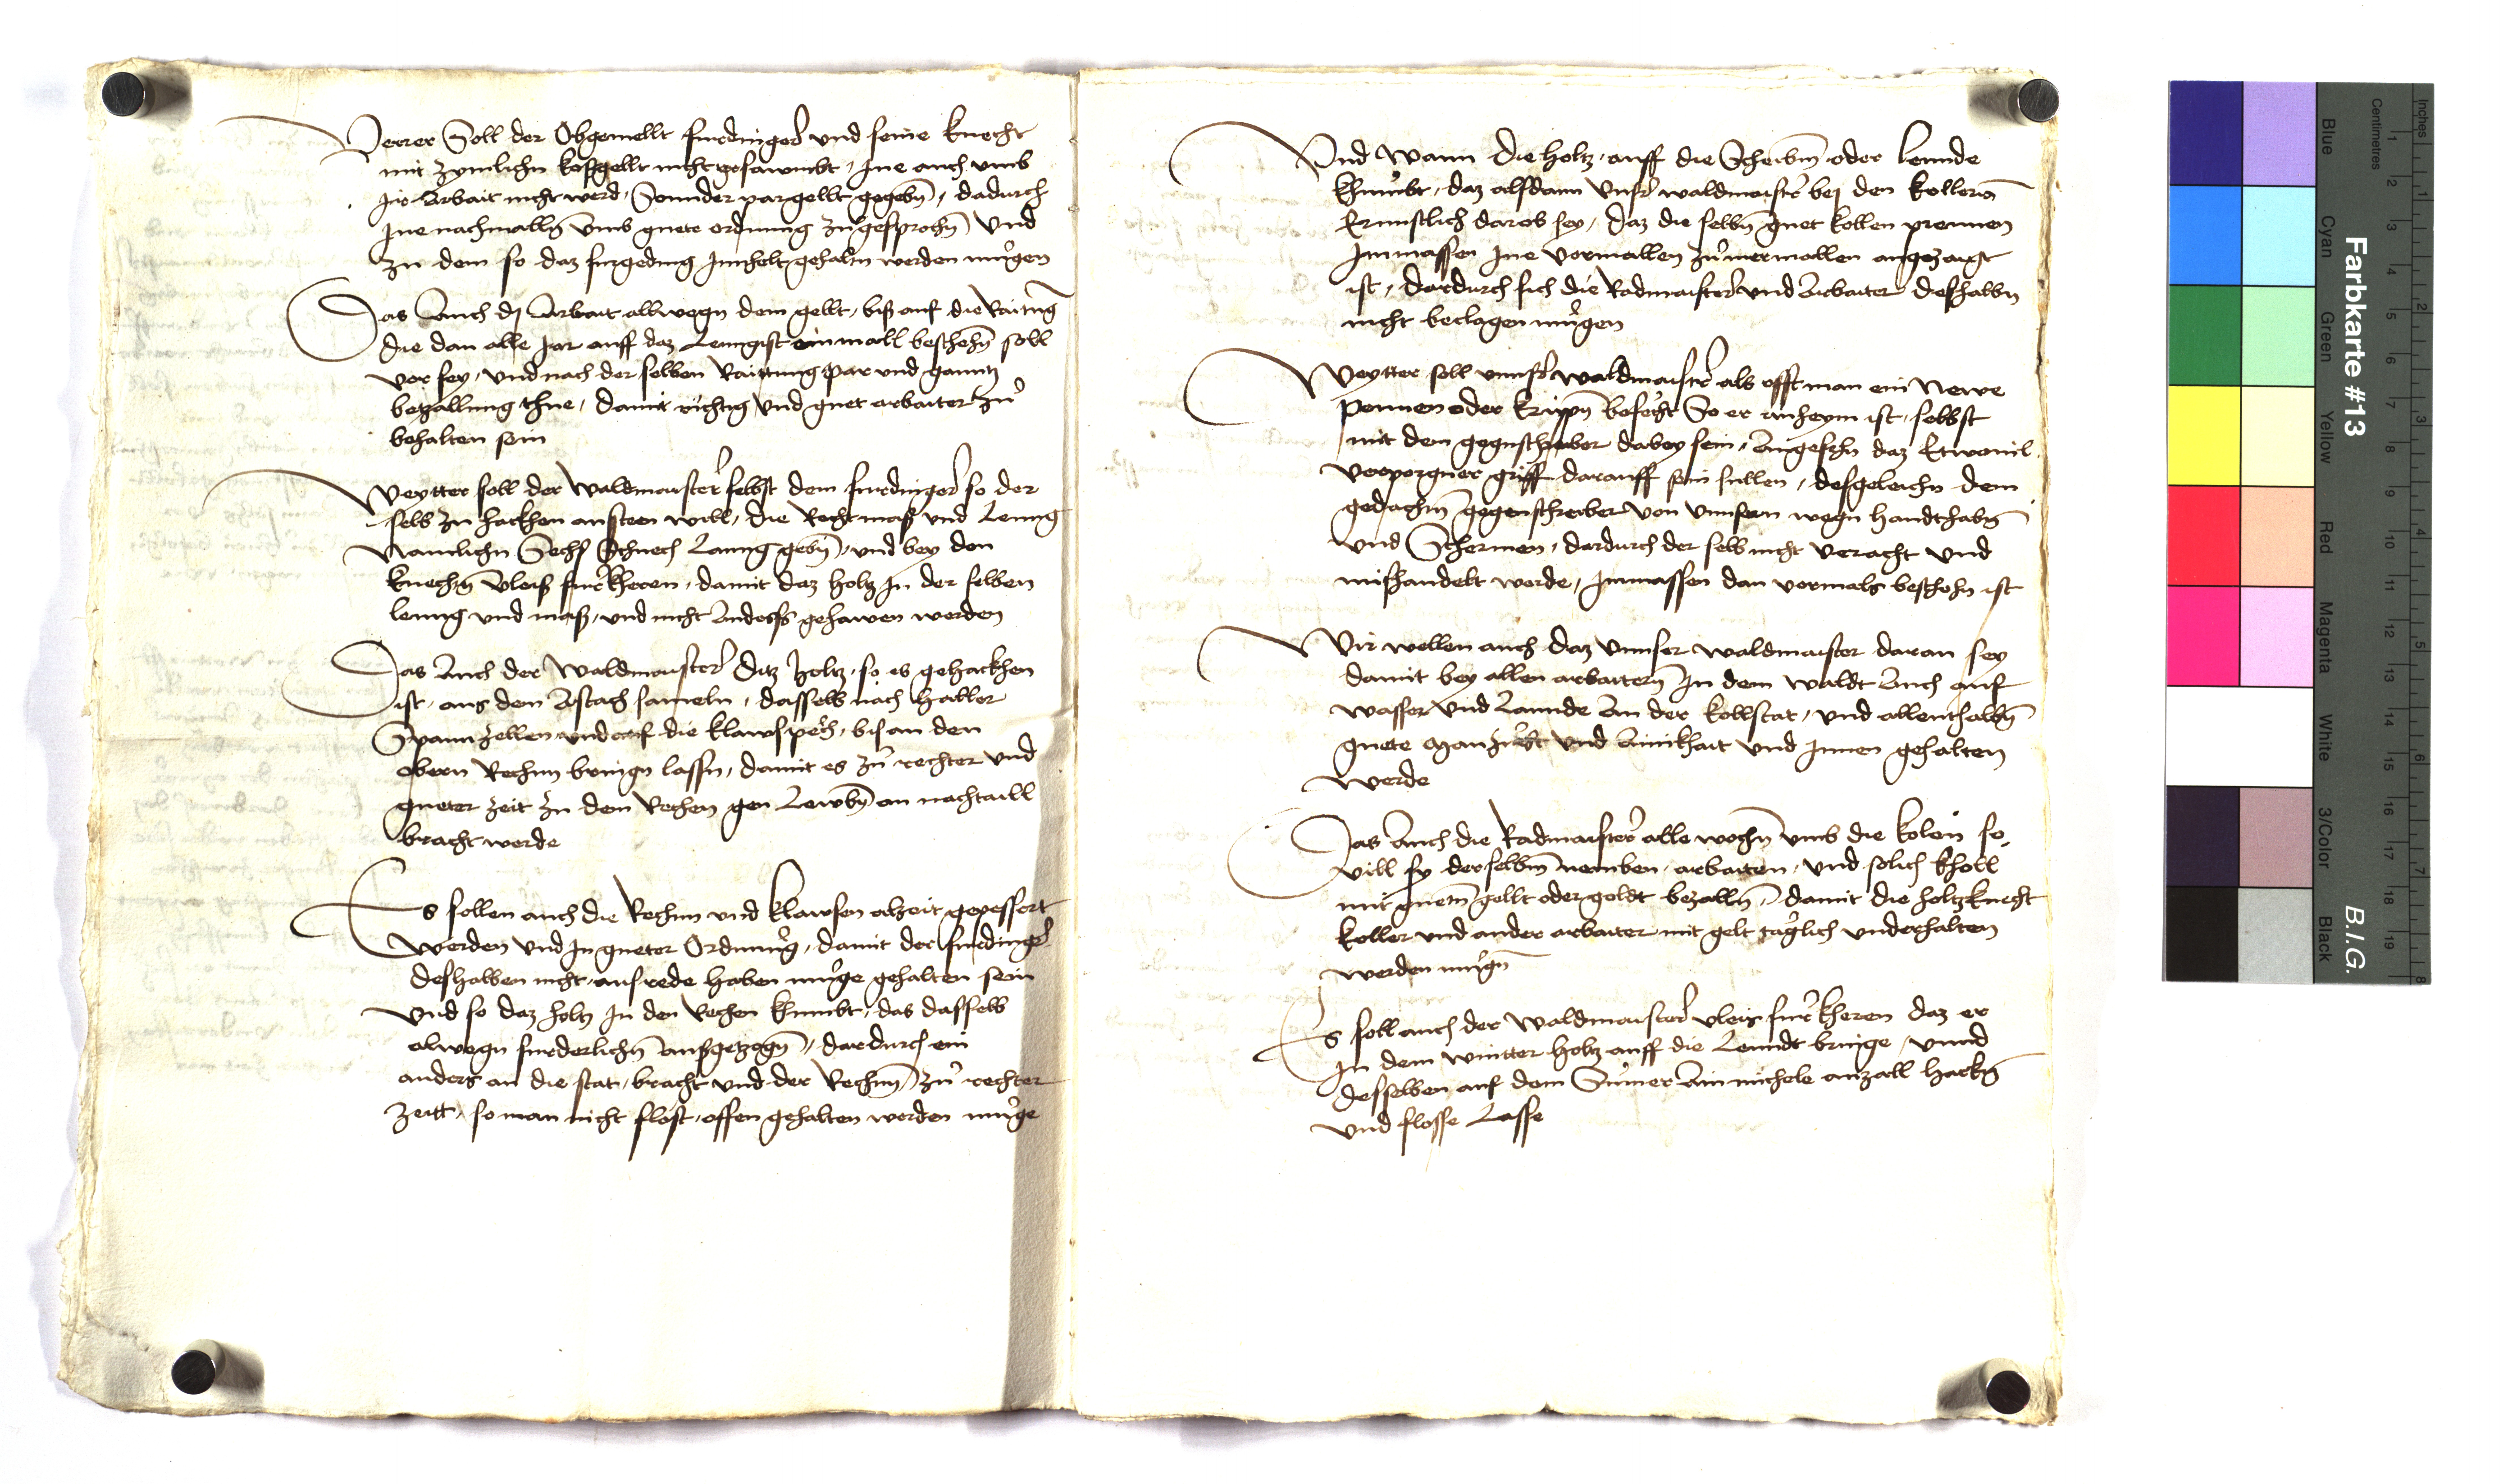 Verrer Soll der Obgemellt furdinger und seine knecht
mit zymlichn kostgellt nicht gesawmbt, Ine auch umb
Ir Arbait nicht werd, Sonnder par gellt gegebn, dadurch
Ine nachmalln umb guete ordnung zugesprochn und
zu dem so daz furgeding Innhelt gehaltn werden mugen
Das Auch dj Arbait allwegn dem gellt, biß auf die Raitung
die dan alle Jar auff daz Lenngist ein mall beschehn soll
vor sey, und nach der selben Raittung par und ganntz
betzallung thue, damit richtig und guet arbaiter zu
behalten sein
Weytter soll der Waldmaister selbst dem furdinger so der
selb zu hackhen ansteen will, die Recht mass und Lenng
Namlichn Sechs Schuech Lanng gebn, und bey den
knechtn vleiß furkheren, damit daz holtz In der selben
leng und maß, und nicht Anderß gehawen werden
Das Auch der Waldmaister ditz holtz, so es gehackhen
ist, aus dem Astach sameln, dasselb nach haller
Spann zellen und auf die klawspech, bis an den
obern Rechen bringn lassn, damit es zu rechter und
gueter zeit zu dem Rechen gen Lewbn an nachtaill
bracht werde
Es sollen auch die Rechen und klawsen alzeit gepessert
werden und In gueter Ordnung, damit der furdinger
deshalben nicht ausrede haben muge gehalten sein
und so daz holtz In den Rechen khumbt, das dasselb
alwegn furderlichn außgetzogn, dardurch ein
anders an die stat, bracht und der Rechen zu rechter
zeitt, so man nicht flost, offen gehalten werden muge
Und Wann die holtz, auff die Scheibm oder lennde
khumbt, daz alsdann unser waldmaister bej den kollern
Ernnstlich darob sey, daz die selbn guet kollen prennen
Inmassen Ine vormallen zu mermallen angezaigt
ist, dardurch sich die Radmaister und Arbaiter deshalbn
nicht beclagen mugen
Weytter soll unnser waldmaister als offt man ein Newe
pennen oder krippn besecht So er anheym ist, selbst
mit dem gegnschreiber dabey sein, Angesehn daz Etwevil
verporgner griff darauff sein sullen, desgeleichn dem
gedachtn gegenschreiber von unnsern wegn handthabn
und Schermen, dardurch der selb nicht veracht und
mishandelt werde, Inmassen dan vormals beschehn ist
Wir wellen auch daz unnser waldmaister daran sey
damit bey allen arbaitern In dem waldt Auch auf
wasser und Lannde An der kollstat, und allenthalbn
guete Manzucht und Ainikhait und Innen gehalten
werde
Das Auch die Radmaister alle wochn umb die kolen so
vill sy derselbm nemben, arbaiten, und solich kholl
mit guetm gellt oder goldt bezalln, damit die holtzknecht
koller und ander arbaiter mit gelt taglich underhalten
werden mugn
Es soll auch der Waldmaister vleis furkheren daz er
In dem wintter holtz auff die Lenndt bringe, unnd
desselben auf dem Sumer Ain michele anzall hackn
und flosse Lasse
Farbkarte #13
B.I.G.
Inches
Centimetres
1 2 3 4 5 6 7 8 9 10 11 12 13 14 15 16 17 18 19
1 2 3 4 5 6 7 8
Blue
Cyan
Green
Yellow
Red
Magenta
White
3/Color
Black